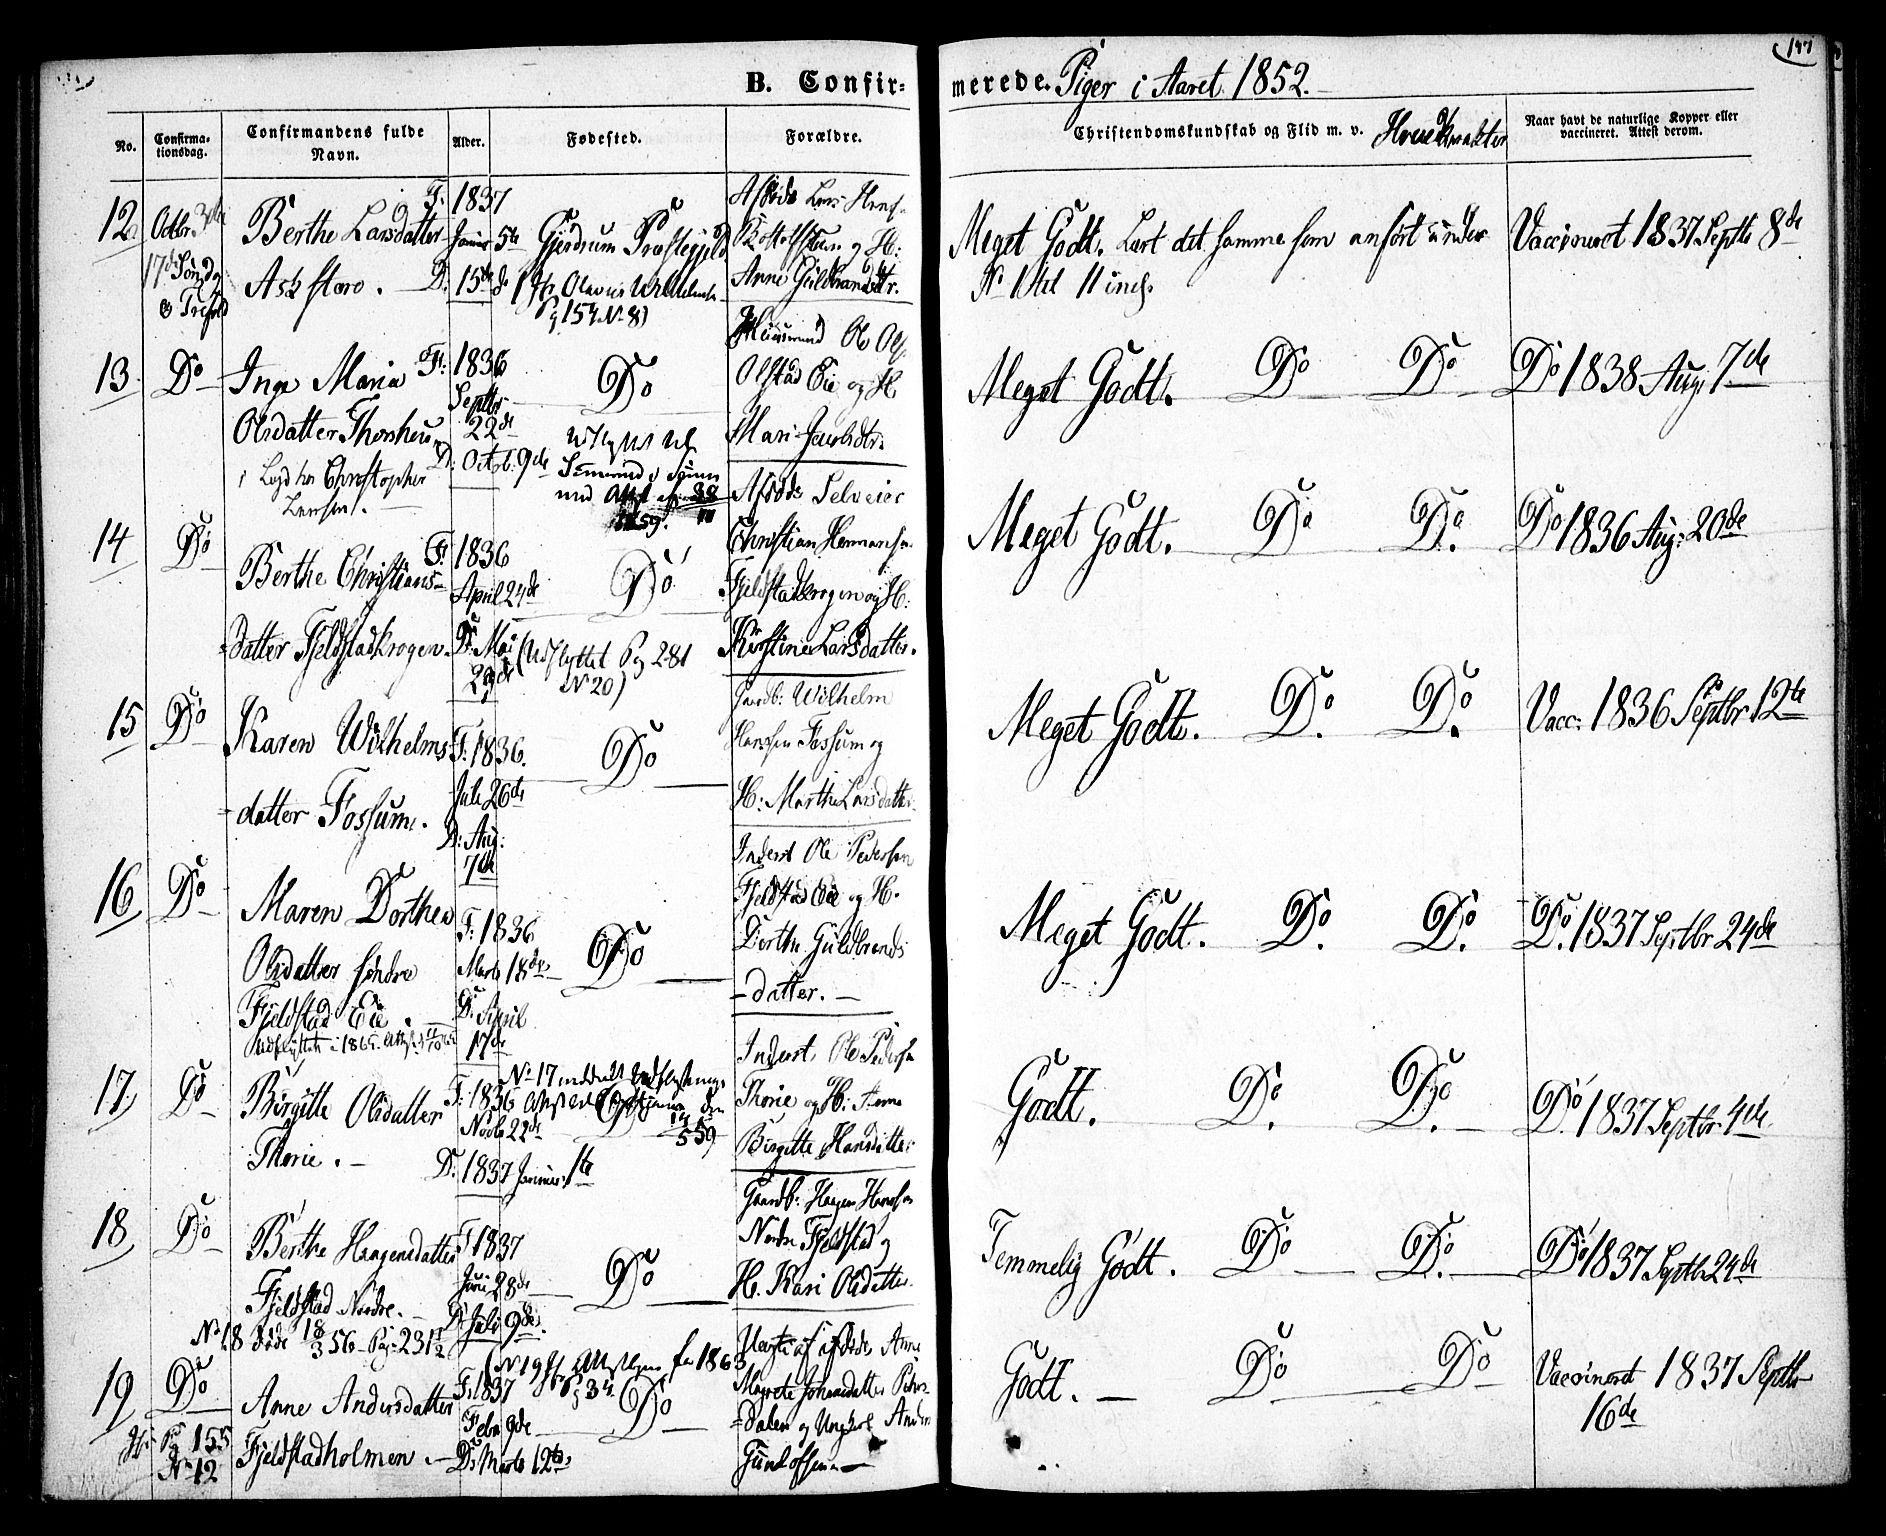 B. Confir-
merede. Piger i Aaret 1852.
No.
Confirma-
tionsdag.
Confirmandens fulde
Navn.
Alder.
Fødested.
Forældre.
Christendomskundskab og Flid m. v.
Naar havt de naturlige Kopper eller
vaccineret. Attest derom.
12
Octbr. 3die
17de Sønd.
e. Trefold
Berthe Larsdatter
Askstøro.
F: 1837
5te
D: 15de
Gjerdrum Præstegjeld
Pg 157 No 8)
Afdøde Lars
og H:
Anne Guldbrandsdtr.
Meget Godt. Lært det samme som anført under
No 1 til 11 incl.
Vaccineret 1837 Septb 8de
13
Do
Inga Maria
Olsdatter
Christopher
Larsen.
F: 1836
Septbr
22de
D: Octob: 9de
Do
1859.
Huusmand Ole Ols.
Olstad Eie og H
Mari
Meget Godt. Do Do
Do 1838 Aug. 7de
14
Do
Berthe Christians-
datter Fjeldstadkrogen.
F: 1836
April 24de
D: Mai
29de
Do
(Udflyttet Pg 281
No 20)
Afdøde Selveier
Christian Hermansen
Fjeldstadkrogen og H:
Kirstine Larsdatter.
Meget Godt. Do Do.
Do 1836 Aug: 20de
15
Do
Karen Wilhelms-
datter Fossum.
F: 1836.
Juli 26de
D: Aug:
7de
Do
Gaardb: Wilhelm
Hansen Fossum og
H: Marthe Larsdatter
Meget Godt. Do. Do.
Vacc: 1836 Septbr 12te
16
Do
Maren Dorthea
Olsdatter søndre
Fjeldstad Eie.
F: 1836
Marts 18de
D: April
17de
Do
Inderst Ole Pedersen
Fjeldstad Eie og H.
Dorthe Guldbrands-
datter.
Meget Godt. Do. Do.
Do. 1837 Septbr 24de
17
Do
Birgitte Olsdatter
Thorie.
F: 1836
Novb 22de
D: 1837 Januar 1te
No 17 meddelt Udflytnings
Attest
Do
Inderst Ole Pedersen
Thorie og H:
Birgitte Hansdatter
Godt. Do. Do.
Do. 1837 Septbr 4de.
18
Do
Berthe Haagensdatter
Fjeldstad Nordre.
No 18 døde 18/3 56 Pag: 231 1/2
F 1837
Juni 28de
D: Juli 9de.
Do
Gaardb: Haagen Hansen
Nordre Fjeldstad og
H. Kari Olsdatter
Temmelig Godt. Do Do.
Do 1837 Septbr 24de
19
Do
Pg 155
No 12
Anne Andersdatter
Fjeldstadholmen.
F: 1837
Febr 9de
D: Marts 12te
Do
Uægte af afdøde Anne
Magrete Johannesdatter
dalen og Ungkarl Anders
Gundersen
Godt. Do Do
Vaccineret 1837 Septbr
16de